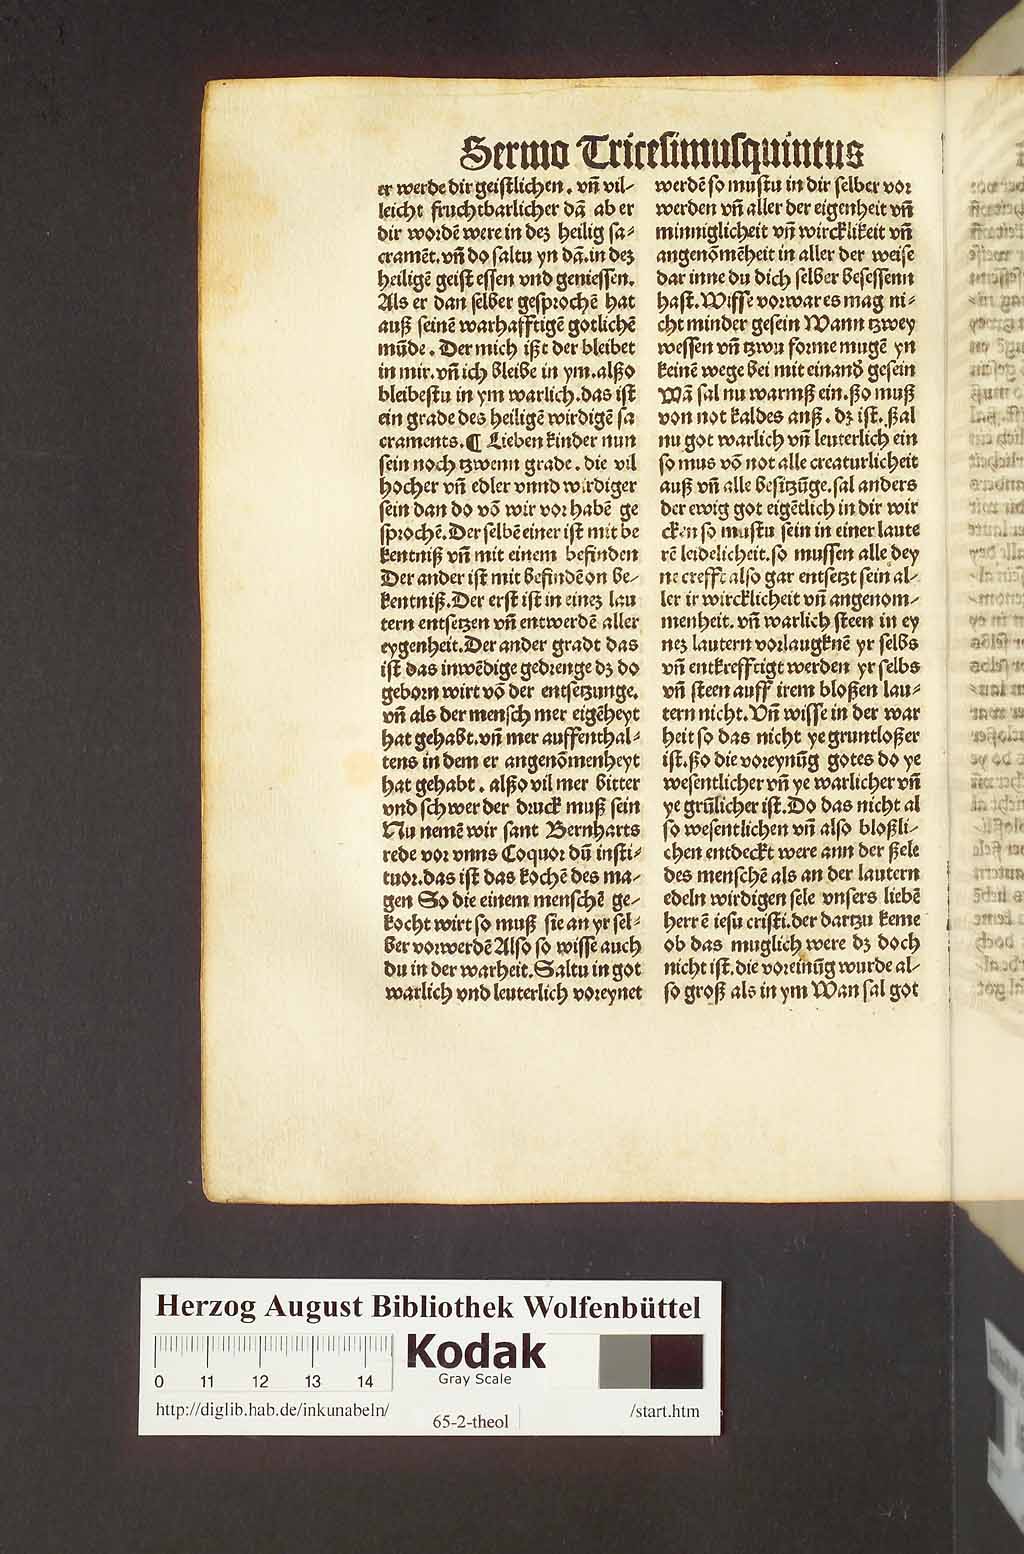 Sermo Tricesimusquintus
er werde dir geistlichen. vñ vil-
leicht fruchtbarlicher dã ab er
dir wordē were in dez heilig sa-
cramēt. vñ do saltu yn dã. in dez
heiligē geist essen vnd geniessen.
Als er dan selber gesprochē hat
auß seinē warhafftigē gotlichē
mũde. Der mich ißt der bleibet
in mir. vñ ich bleibe in ym. alßo
bleibestu in ym warlich. das ist
ein grade des heiligē wirdigē sa
craments. ¶ Lieben kinder nun
sein noch tzwenn grade. die vil
hocher vñ edler vnnd wirdiger
sein dan do vō wir vor habē ge
sprochē. Der selbē einer ist mit be
kentniß vñ mit einem befinden
Der ander ist mit befindē on be-
kentniß. Der erst ist in einez lau
tern entsetzen vñ entwerdē aller
eygenheit. Der ander gradt das
ist das inwēdige gedrenge dz do
geborn wirt vō der entsetzunge.
vñ als der mensch mer eigēheyt
hat gehabt. vñ mer auffenthal-
tens in dem er angenōmenheyt
hat gehabt. alßo vil mer bitter
vnd schwer der druck muß sein
Nu nemē wir sant Bernharts
rede vor vnns Coquor dũ insti-
tuor. das ist das kochē des ma-
gen So die einem menschē ge-
kocht wirt so muß sie an yr sel-
ber vorwerdē Also so wisse auch
du in der warheit. Saltu in got
warlich vnd leuterlich voreynet
werdē so mustu in dir selber vor
werden vñ aller der eigenheit vñ
minniglicheit vñ wircklikeit vñ
angenōmēheit in aller der weise
dar inne du dich selber besessenn
hast. Wisse vorwar es mag ni-
cht minder gesein Wann tzwey
wessen vñ tzwu forme mugē yn
keinē wege bei mit einand' gesein
Wã sal nu warmß ein. ßo muß
von not kaldes auß. dz ist. ßal
nu got warlich vñ leuterlich ein
so mus vō not alle creaturlicheit
auß vñ alle besitzũge. sal anders
der ewig got eigētlich in dir wir
cken so mustu sein in einer laute
rē leidelicheit. so mussen alle dey
ne crefft also gar entsetzt sein al-
ler ir wircklicheit vñ angenom-
menheit. vñ warlich steen in ey
nez lautern vorlaugknē yr selbs
vñ entkrefftigt werden yr selbs
vñ steen auff irem bloßen lau-
tern nicht. Vñ wisse in der war
heit so das nicht ye gruntloßer
ist. ßo die voreynũg gotes do ye
wesentlicher vñ ye warlicher vñ
ye grũlicher ist. Do das nicht al
so wesentlichen vñ also bloßli-
chen entdeckt were ann der ßele
des menschē als an der lautern
edeln wirdigen sele vnsers liebē
herrē iesu cristi. der dartzu keme
ob das muglich were dz doch
nicht ist. die voreinũg wurde al-
so groß als in ym Wan sal got
Herzog August Bibliothek Wolfenbüttel
0 11 12 13 14
Kodak
Gray Scale
http://diglib.hab.de/inkunabeln/
65-2-theol
/start.htm